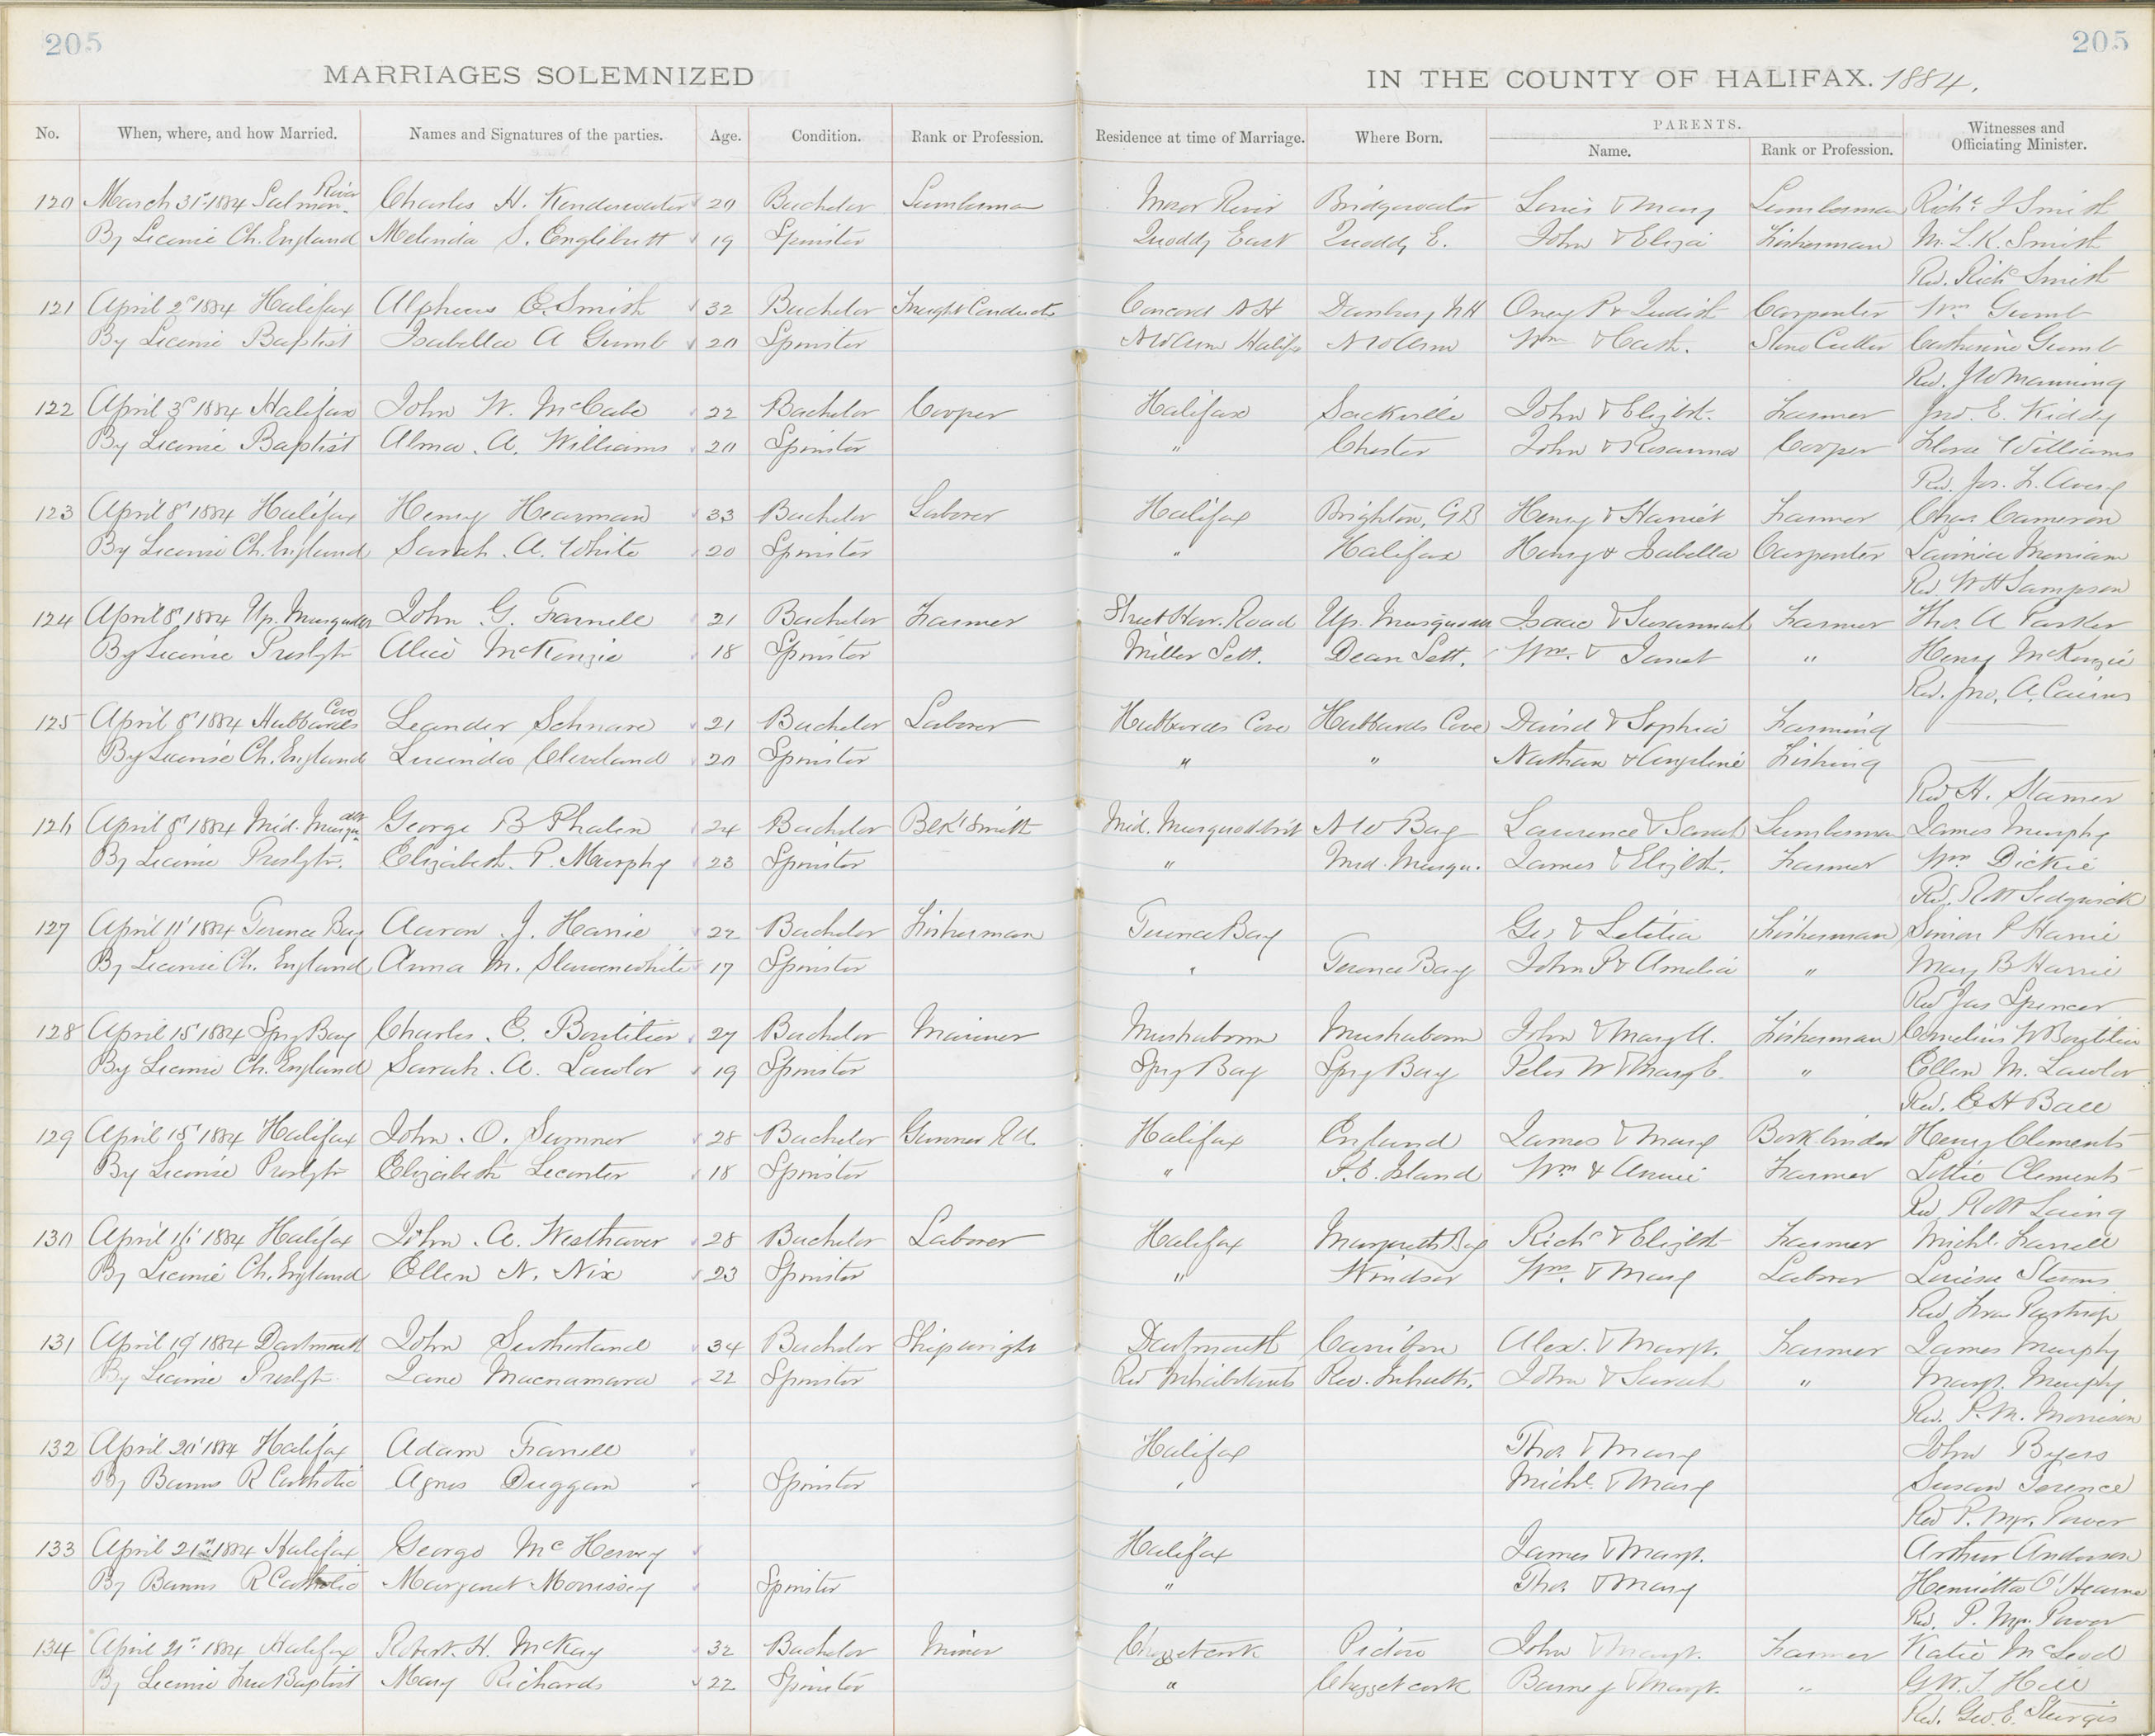 205
205
MARRIAGES SOLEMNIZED
IN THE COUNTY OF HALIFAX. 1884.
No. When, where, and how Married. Names and Signatures of the parties. Age. Condition. Rank or Profession. Residence at time of Marriage. Where Born. PARENTS. Name. Rank or Profession. Witnesses and Officiating Minister.
120 March 31st 1884 Salmon River Charles H. Bachelor Lumberman Moser River Bridgewater Louis & Mary Lumberman Richd J Smith
By License Ch. England Melinda S. 19 Spinster Quoddy East Quoddy E. John & Eliza Fisherman M. L. K. Smith
Rev. Richd Smith
121 April 2d 1884 Halifax Alpheus E. Smith 32 Bachelor Freight Conductor Concord N H Danbury NH P & Judith Carpenter Wm Gumb
By License Baptist Isabella A Gumb 20 Spinster N W Arm Halifx N W Arm Wm & Cath. Stone Cutter Catherine Gumb
Rev. J W Manning
122 April 3d 1884 Halifax John W. McCabe 22 Bachelor Cooper Halifax Sackville John & Elizbt. Farmer Jno. E. Kiddy
By License Baptist Alma. A. Williams 20 Spinster " Chester John & Rosanna Cooper Flora Williams
Rev. Jos. F. Avery
123 April 8' 1884 Halifax Henry Hearman 33 Bachelor Laborer Halifax Brighton, GB Henry & Harriet Farmer Chas. Cameron
By License Ch. England Sarah. A. White 20 Spinster " Halifax Henry & Isabella Carpenter Lavinia Merriam
Rev. W H Sampson
124 April 8' 1884 Up. John G. Farnell 21 Bachelor Farmer Sheet Har. Road Up. Isaac & Susannah Farmer Thos. A Parker
By License Presbytn Alice McKenzie 18 Spinster Miller Sett. Dean Sett. Wm. & Janet " Henry McKenzie
Rev. Jno. A. Cairns
125 April 8' 1884 Hubbards Cove Leander Schnare 21 Bachelor Laborer Hubbards Cove Hubbards Cove David & Sophia Farming
By License Ch. England Lucinda Cleveland 20 Spinster " " Nathan & Angeline Fishing
Rev H. Stamer
126 April 8' 1884 Mid. George B Phalen 24 Bachelor Blk Smith Mid. Musquodobit N W Bay Laurence & Sarah Lumberman James Murphy
By License Presbytn. Elizabeth. P. Murphy 23 Spinster " Mid. Musqu. James & Elizbt. Farmer Wm Dickie
Rev. Sedgwick
127 April 11' 1884 Terence Bay Aaron J. Harrie 22 Bachelor Fisherman Terence Bay Geo & Letitia Fisherman Simion P Harrie
By License Ch. England Anna M. Slauenwhite 17 Spinster " Terence Bay John P & Amelia " Mary B Harrie
Rev Jas Spencer
128 April 15' 1884 Spry Bay Charles. E. Boutilier 27 Bachelor Mariner Mushaboom Mushaboom John & Mary A. Fisherman Cornelius W Boutilier
By License Ch. England Sarah. A. Lawlor 19 Spinster Spry Bay Spry Bay Peter W & Mary C. " Ellen M. Lawlor
Rev. E H Ball
129 April 15' 1884 Halifax John. O. Sumner 28 Bachelor Gunner R A. Halifax England James & Mary Book binder Henry Clements
By License Presbytn Elizabeth Leconter 18 Spinster " P. E. Island Wm & Annie Farmer Lottie Clements
Rev R Laing
130 April 16' 1884 Halifax John. A. Westhaver 28 Bachelor Laborer Halifax Margarets Bay Richd & Elizbt Farmer Michl. Farrell
By License Ch. England Ellen N. Nix 23 Spinster " Windsor Wm. & Mary Laborer Louisa Stevens
Rev Fran Partridge
131 April 19' 1884 Dartmouth John Sutherland 34 Bachelor Shipwright Dartmouth Carribou Alex. & Margt. Farmer James Murphy
By License Presbytn. Jane Macnamara 22 Spinster Riv Inhabitants Riv. Inhabts. John & Sarah " Margt. Murphy
Rev. P. M. Morrison
132 April 20' 1884 Halifax Adam Farrell Halifax Thos & Mary John Byers
By Banns R Catholic Agnes Duggan Spinster " Michl. & Mary Susan Terence
Rev P. Mgr. Power
133 April 21st 1884 Halifax George Mc Hervey Halifax James & Margt. Arthur Anderson
By Banns R Catholic Margaret Morrissey Spinster " Thos & Mary Henrietta O'Hearne
Rev. P. Mgr. Power
134 April 21st 1884 Halifax Robert. H. McKay 32 Bachelor Miner Chezzetcook Pictou John & Margt. Farmer Katie McLeod
By License Free Baptist Mary Richards 22 Spinster " Chezzetcook Barney & Margt. " G W. T. Hill
Rev. Geo. E. Sturgis